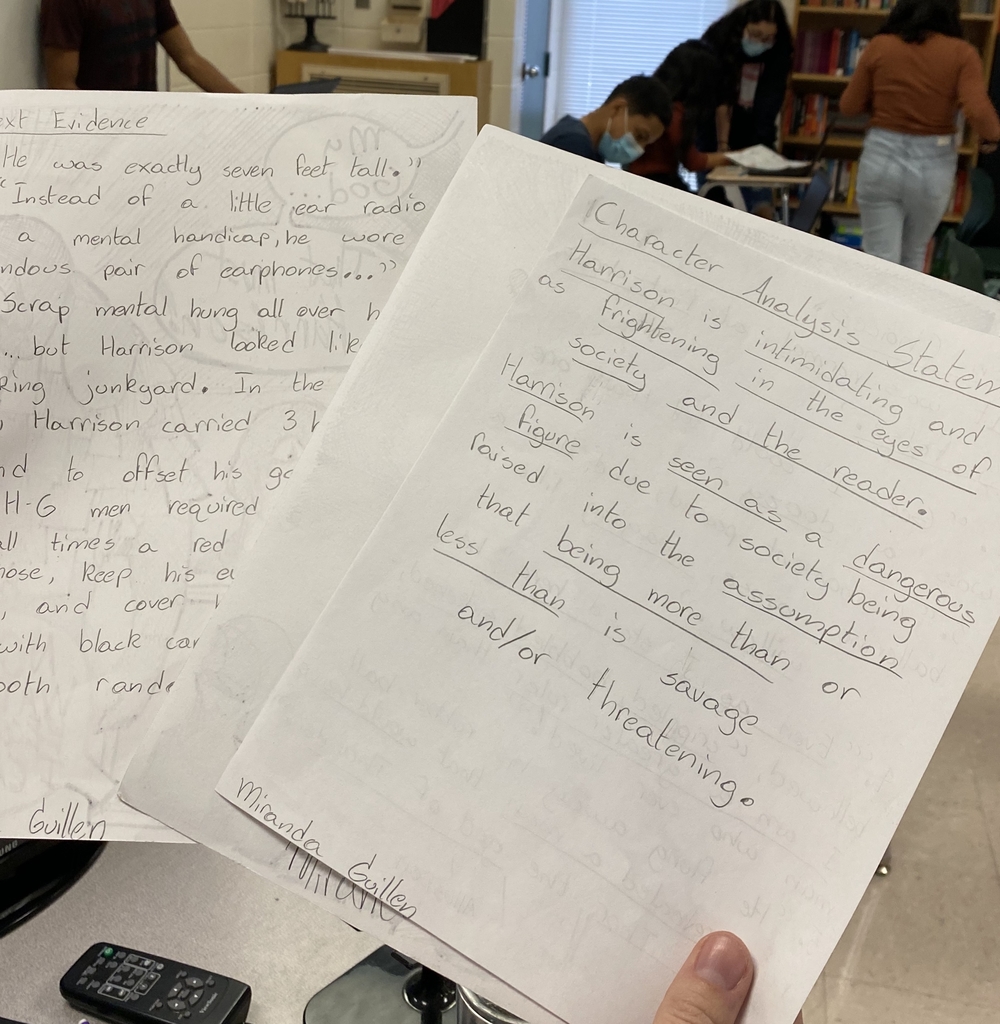 Text Evidence
He was exactly seven feet tall."
"Instead of a little ear radio
a mental handicap, he wore
pair of earphones..."
Scrap mental hung all over
... but Harrison looked
junkyard. In the
Harrison carried 3
to offset his
H-G men required
all times a red
nose, keep his
, and cover
with black
Guillen
Character Analysis
Harrison is intimidating and
as frightening in the eyes of
society and the reader.
Harrison is seen as a dangerous
figure due to society being
raised into the assumption
that being more than or
less than is savage
and/or threatening.
Miranda Guillen